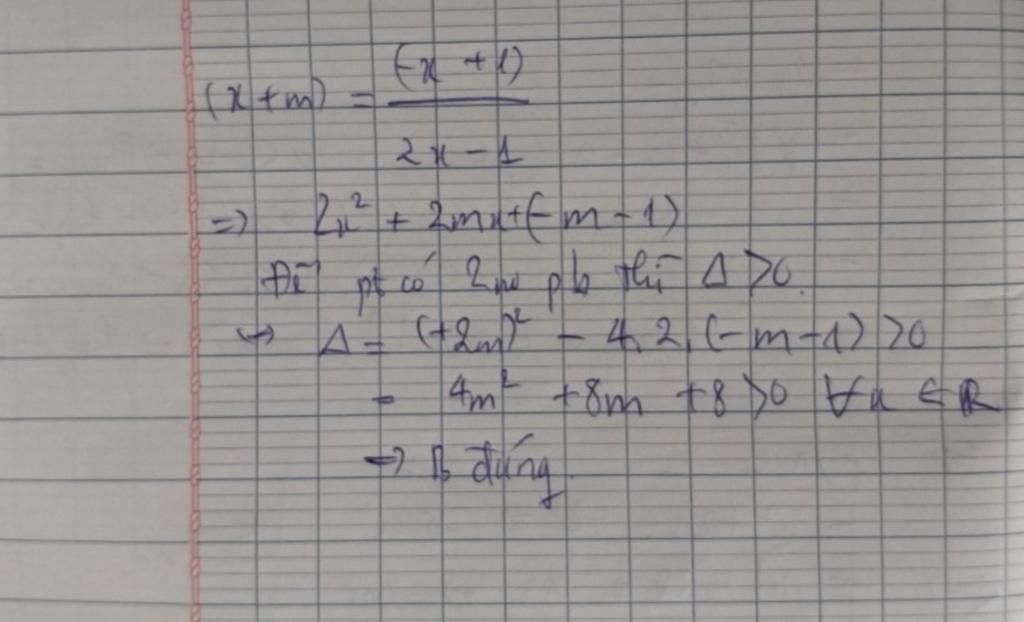 (x + m) = (-x + 1) / 2x - 1
=> 2x² + 2mx + (-m - 1)
Để pt có 2 no pb thì Δ > 0.
↪ Δ = (+2m)² - 4.2.(-m - 1) > 0
= 4m² + 8m + 8 > 0 ∀x ∈ R
→ B đúng.